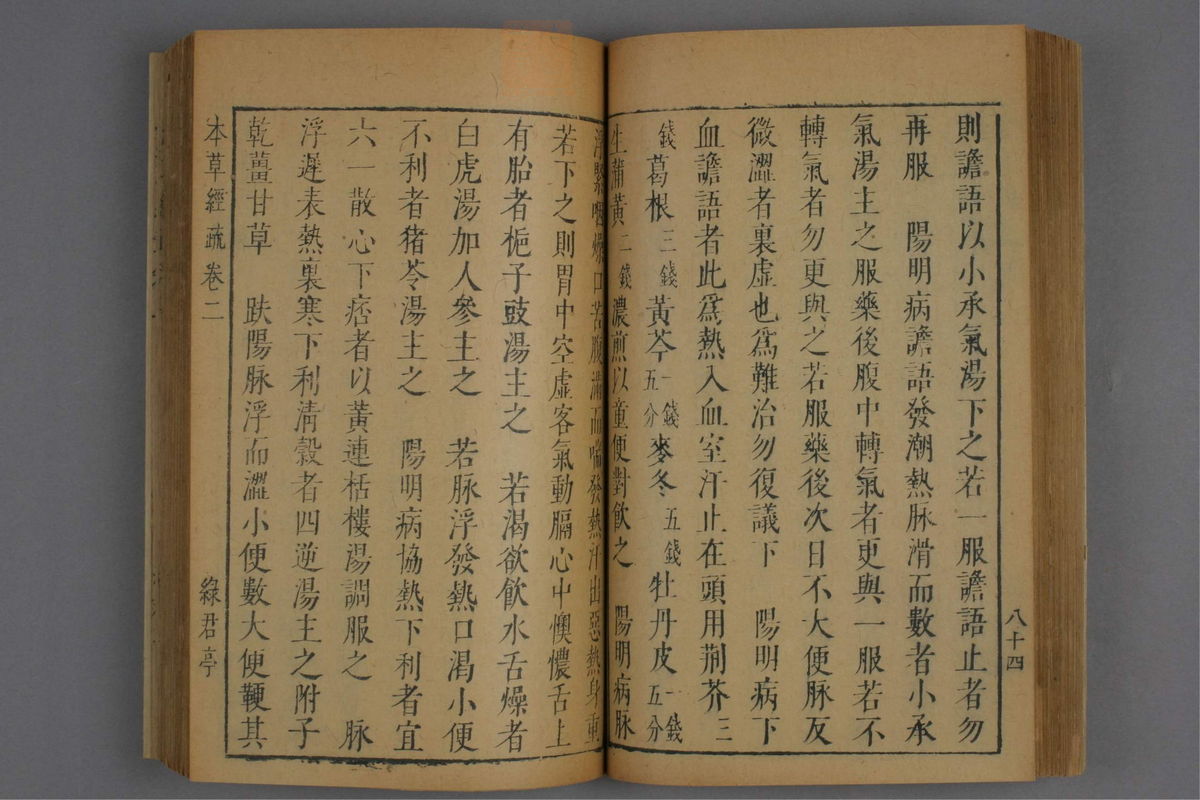 八十四
則譫語以小承氣湯下之若一服譫語止者勿
再服　陽明病譫語發潮熱脉滑而數者小承
氣湯主之服藥後腹中轉氣者更與一服若不
轉氣者勿更與之若服藥後次日不大便脉反
微澀者裏虛也爲難治勿復議下　陽明病下
血譫語者此爲熱入血室汗止在頭用荆芥三
錢葛根三錢黃芩一錢五分麥冬五錢牡丹皮一錢五分
生蒲黃二錢濃煎以童便對飲之　陽明病脉
浮緊咽燥口苦腹滿而喘發熱汗出惡熱身重
若下之則胃中空虛客氣動膈心中懊憹舌上
有胎者梔子豉湯主之　若渴欲飲水舌燥者
白虎湯加人參主之　若脉浮發熱口渴小便
不利者猪苓湯主之　陽明病協熱下利者宜
六一散心下痞者以黃連栝樓湯調服之　脉
浮遲表熱裏寒下利清穀者四逆湯主之附子
乾薑甘草　趺陽脉浮而澀小便數大便鞕其
本草經疏卷二
綠君亭